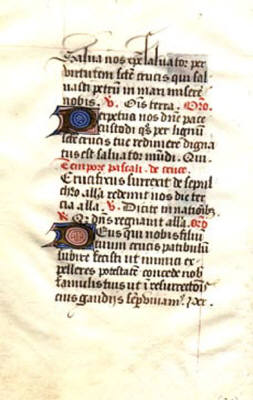 Salua nos xp̄e saluator per
virtutem sc̄te crucis qui sal
uasti petrum in mari miserere
nobis. V. Ois terra. Oro
Perpetua nos dn̄e pace
custodi qs per lignum
sc̄te crucis tue redimere digna
tus est saluator mūdi. Qui
Tempore pascali. de cruce.
Crucifixus surrexit de sepul
chro alla redemit nos die ter
cia alla. V. Dicite in natiōibꝫ
R. Qr dn̄s regnauit alla. oro
Deus qui nobis filiū
tuum crucis patibulū
subire fecisti ut inimici ex
pelleres potestatē concede nob
famulis tuis ut ī resurrectōis
eius gaudijs semp viuamꝰ. p